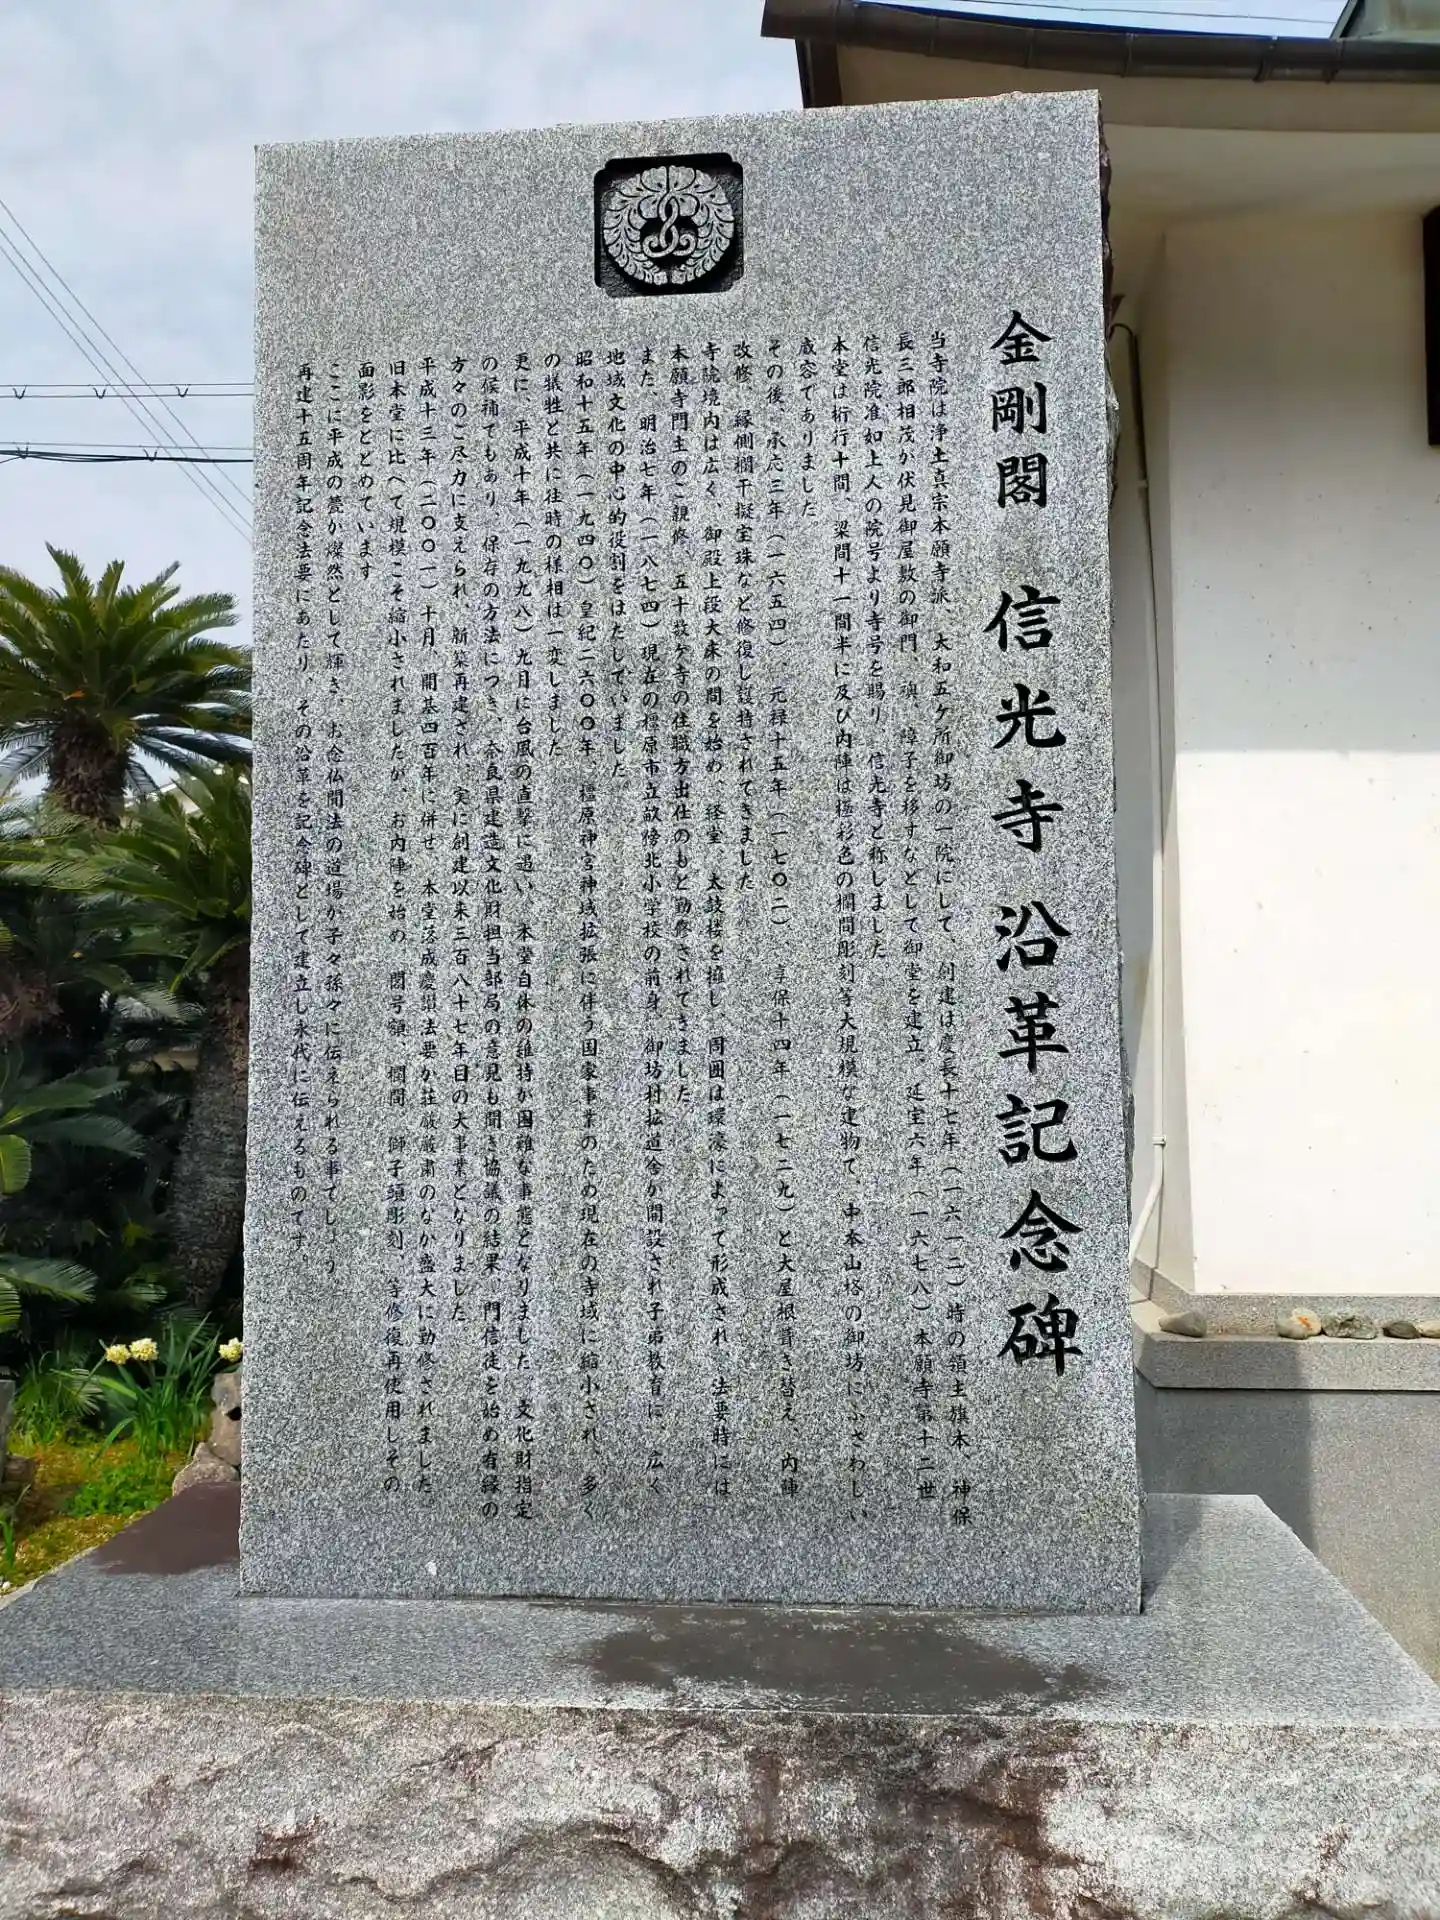 金剛閣 信光寺沿革記念碑
当寺院は浄土真宗本願寺派、大和五ケ所御坊の一院にして、創建は慶長十七年(一六一二)時の領主旗本、神保
長三郎相茂が伏見御屋敷の御門、襖、障子を移すなどして御堂を建立、延宝六年(一六七八)本願寺第十二世
信光院准如上人の院号より寺号を賜り、信光寺と称しました
本堂は桁行十間、梁間十一間半に及び内陣は極彩色の欄間彫刻等大規模な建物で、中本山格の御坊にふさわしい
威容でありました
その後、承応三年(一六五四)、元禄十五年(一七〇二)、享保十四年(一七二九)と大屋根葺き替え、内陣
改修、縁側欄干擬宝珠など修復し護持されてきました
寺院境内は広く、御殿上段大床の間を始め、経堂、太鼓楼を擁し、周囲は環濠によって形成され、法要時には
本願寺門主のご親修、五十数ケ寺の住職方出仕のもと勤修されてきました
また、明治七年(一八七四)現在の橿原市立畝傍北小学校の前身、御坊村拡道舎が開設され子弟教育に、広く
地域文化の中心的役割をはたしていました
昭和十五年(一九四〇)皇紀二六〇〇年、橿原神宮神域拡張に伴う国家事業のため現在の寺域に縮小され、多く
の犠牲と共に往時の様相は一変しました
更に、平成十年(一九九八)九月に台風の直撃に遭い、本堂自体の維持が困難な事態となりました、文化財指定
の候補でもあり、保存の方法につき、奈良県建造文化財担当部局の意見も聞き協議の結果、門信徒を始め有縁の
方々のご尽力に支えられ、新築再建され、実に創建以来三百八十七年目の大事業となりました
平成十三年(二〇〇一)十月、開基四百年に併せ、本堂落成慶讃法要が荘厳厳粛のなか盛大に勤修されました
旧本堂に比べて規模こそ縮小されましたが、お内陣を始め、閣号額、欄間、獅子頭彫刻、等修復再使用しその
面影をとどめています
ここに平成の甍が燦然として輝き、お念仏聞法の道場が子々孫々に伝えられる事でしょう
再建十五周年記念法要にあたり、その沿革を記念碑として建立し永代に伝えるものです。